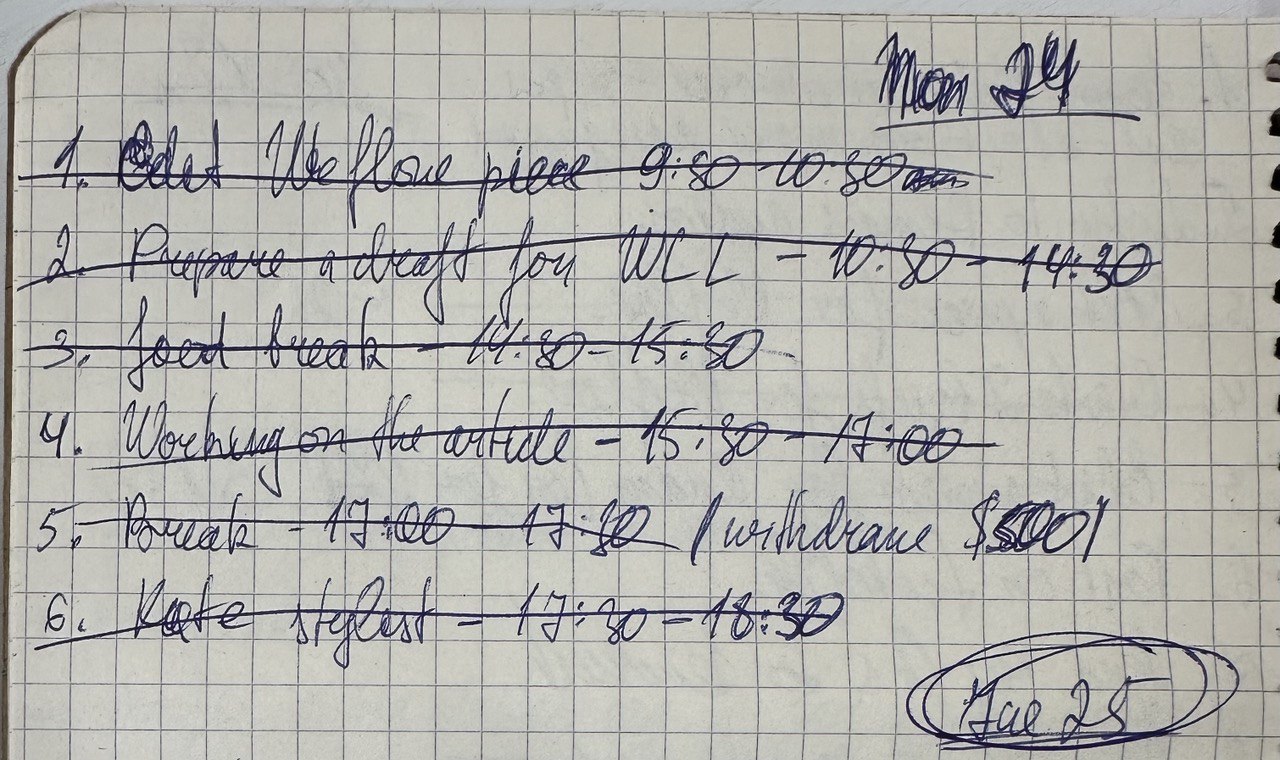 Mon 24
1. Edit Weflow piece 9:30 - 10:30
2. Prepare a draft for WLL - 10:30 - 14:30
3. food break - 14:30 - 15:30
4. Working on the article - 15:30 - 17:00
5. Break - 17:00 - 17:30 (withdraw $500)
6. Kate stylist - 17:30 - 18:30
Tue 25